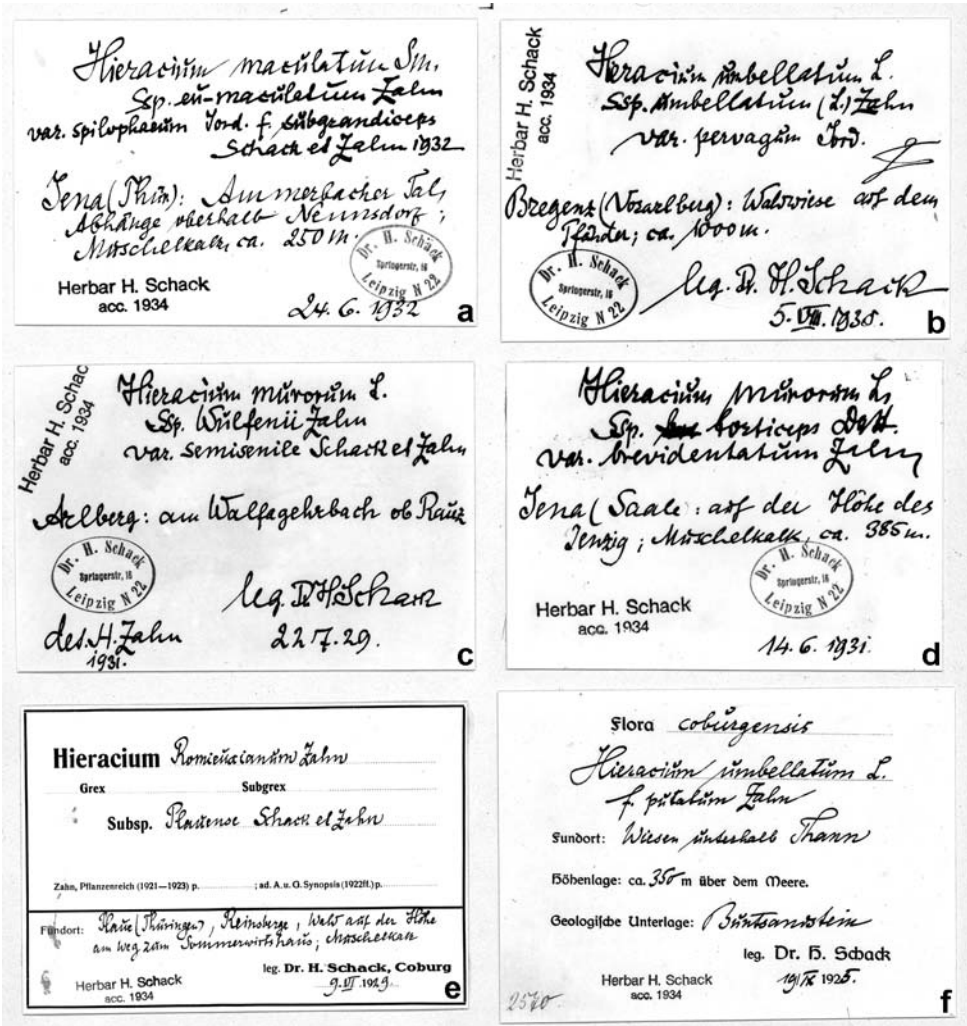 Hieracium maculatum Sm.
Ssp. eu-maculatum Zahn
var. spilophaeum Jord. f. subgrandiceps
Schack et Zahn 1932
Jena (Thür): Ammerbacher Tal,
Abhänge oberhalb Nennsdorf;
Muschelkalk, ca. 250 m.
Dr. H. Schack
Springerstr. 16
Leipzig N 22
Herbar H. Schack
acc. 1934
24. 6. 1932
a
Herbar H. Schack
acc. 1934
Hieracium umbellatum L.
Ssp. umbellatum (L.) Zahn
var. pervagum Jord.
Bregenz (Vorarlberg): Waldwiese auf dem
Pfänder; ca. 1000 m.
Dr. H. Schack
Springerstr. 16
Leipzig N 22
leg. Dr. H. Schack
5. VIII.
b
Herbar H. Schac
acc. 1934
Hieracium murorum L.
Ssp. Wulfenii Zahn
var. semisenile Schack et Zahn
Arlberg: am Walfagehrbach ob Rauz
Dr. H. Schack
Springerstr. 16
Leipzig N 22
leg. Dr H Schack
des. H. Zahn
1931.
22 7. 29.
c
Hieracium murorum L.
Ssp. torticeps Dahl.
var. brevidentatum Zahn
Jena (Saale: auf der Höhe des
Jenzig; Muschelkalk, ca. 385 m.
Dr. H. Schack
Springerstr. 16
Leipzig N 22
Herbar H. Schack
acc. 1934
14. 6. 1931.
d
Hieracium Romieuxianum Zahn
Grex Subgrex
Subsp. Plauense Schack et Zahn
Zahn, Pflanzenreich (1921—1923) p. ; ad. A. u. G. Synopsis (1922ff.) p.
Fundort: Plaue (Thüringen), Reinsberge, Wald auf der Höhe
am Weg zum Sommerwirtshaus; Muschelkalk
leg. Dr. H. Schack, Coburg
Herbar H. Schack
acc. 1934
9. VI 1929.
e
Flora coburgensis
Hieracium umbellatum L.
f. putatum Zahn
Fundort: Wiesen unterhalb Thann
Höhenlage: ca. 350 m über dem Meere.
Geologische Unterlage: Buntsandstein
leg. Dr. H. Schack
Herbar H. Schack
acc. 1934
19/IX 1925.
2570
f